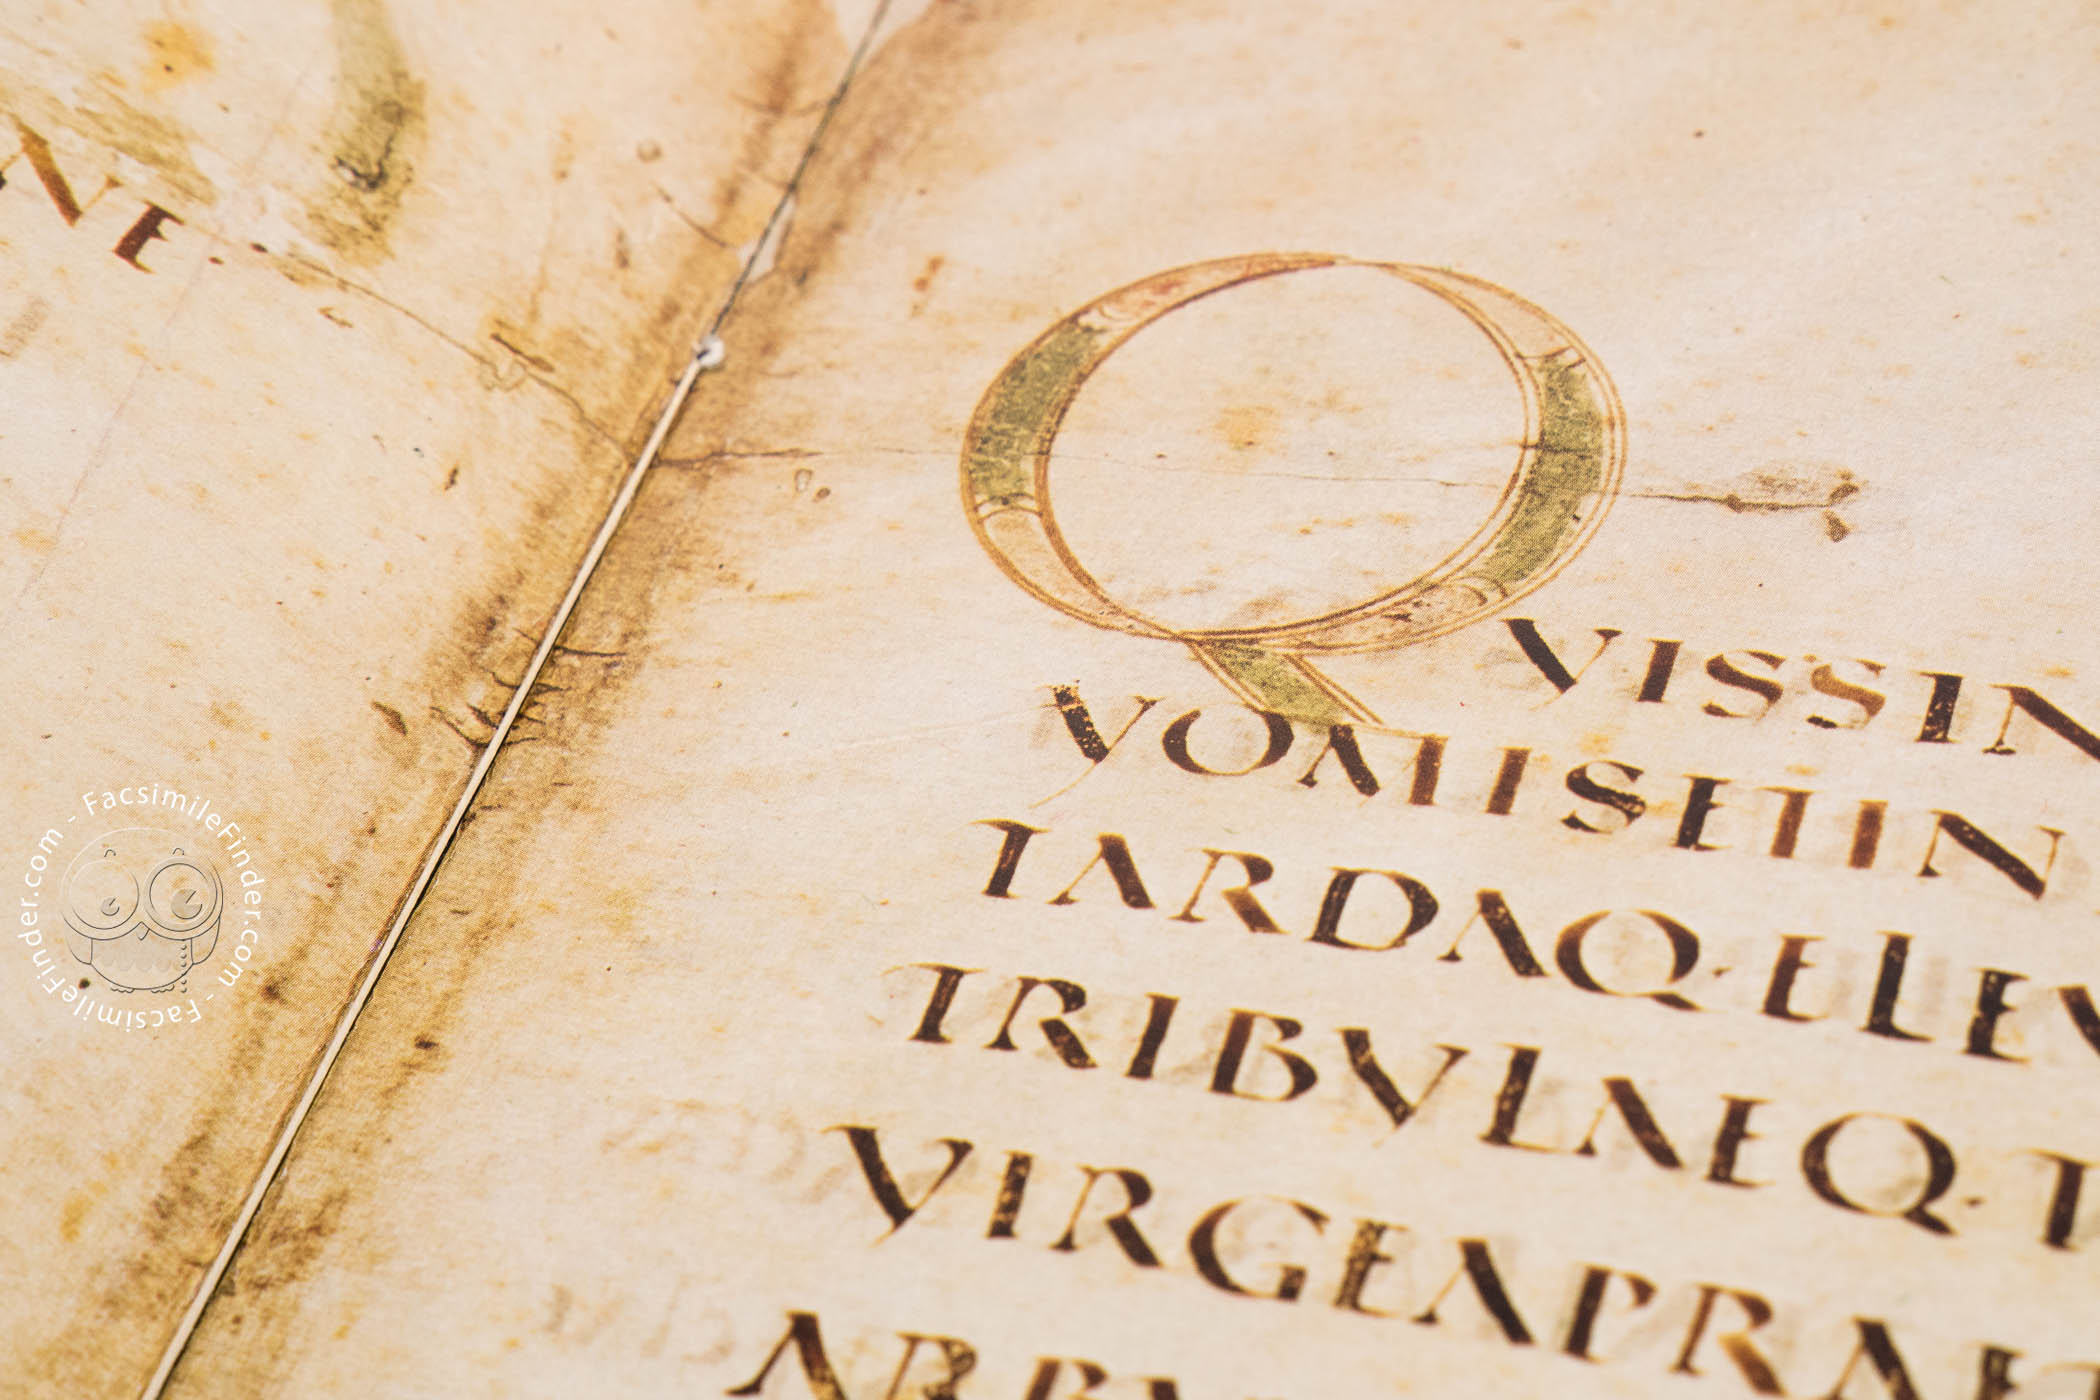 NE
QVISSIN
VOMISETIN
TARDAQ·ELEV
TRIBVLAEQ·T
VIRGEAPRAE
ARBV
FacsimileFinder.com - FacsimileFinder.com -